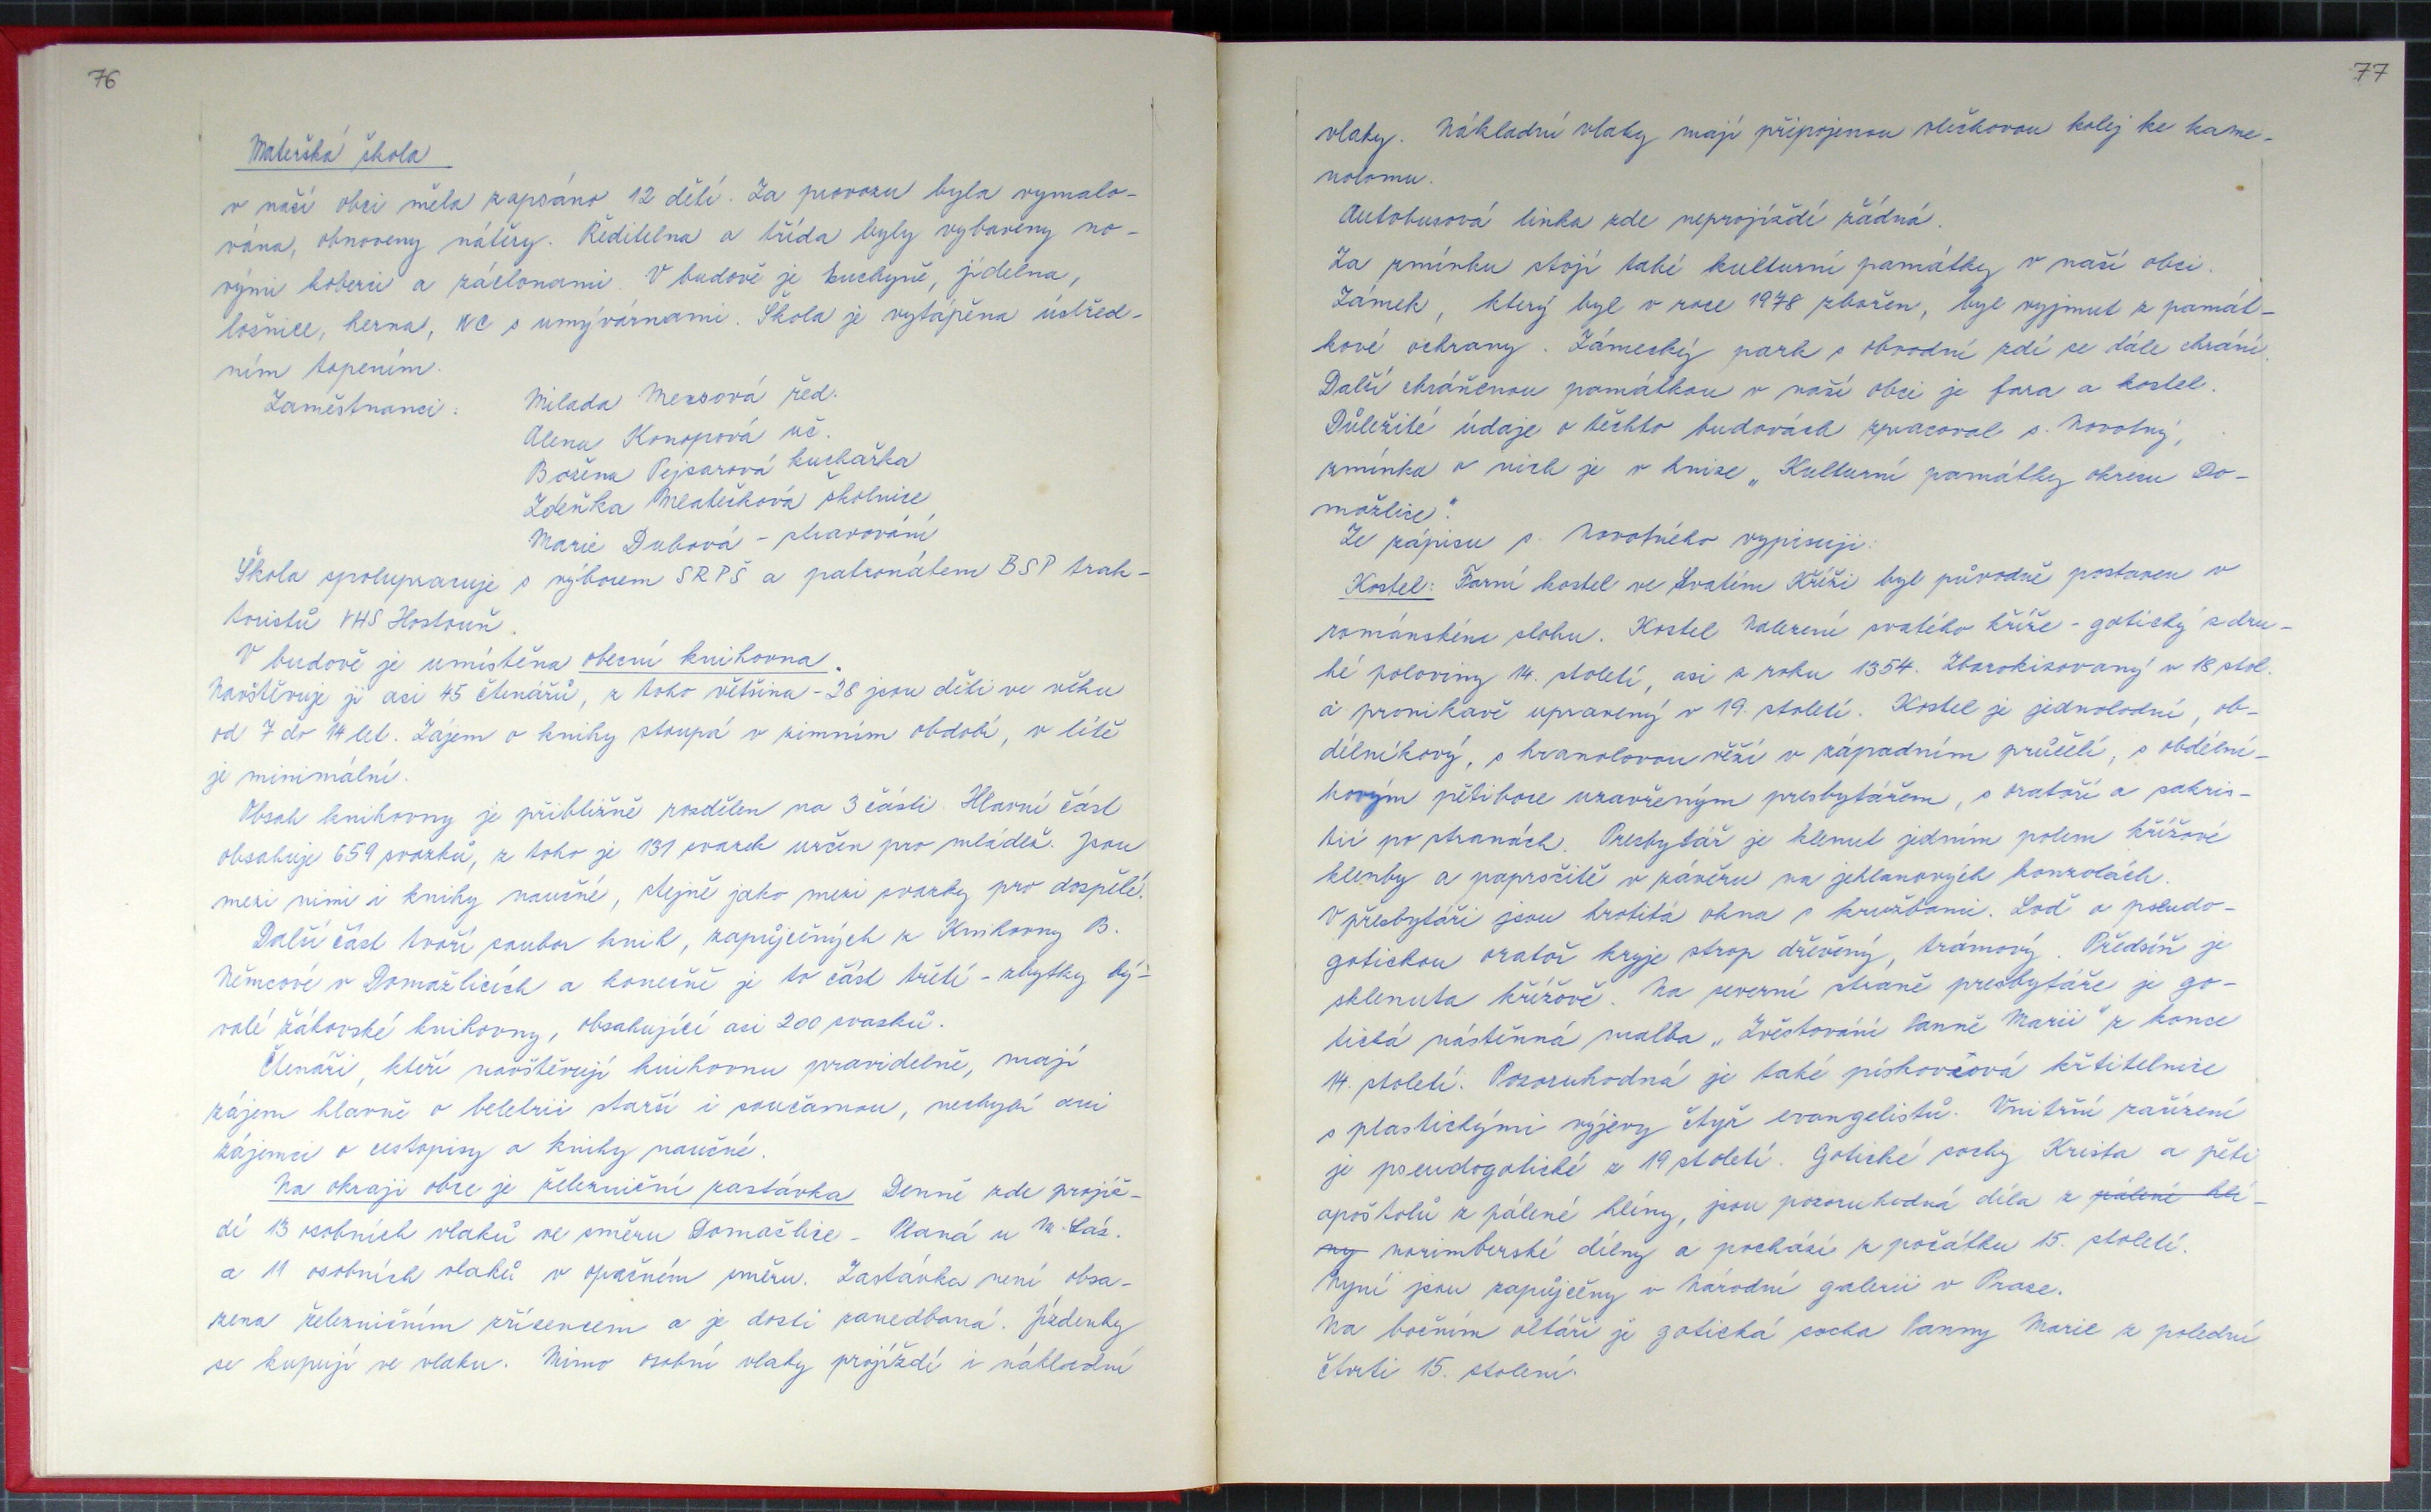 76
Mateřská škola
v naší obci měla zapsáno 12 dětí. Za provozu byla vymalo-
vána, obnoveny nátěry. Ředitelna a třída byly vybaveny no-
vými koberci a záclonami. V budově je kuchyně, jídelna,
ložnice, herna, WC s umývárnami. Škola je vytápěna ústřed-
ním topením.
Zaměstnanci: Milada řed.
Alena Konopová uč.
Božena Pejsarová kuchařka
Zdeňka školnice
Marie Dubová - stravování
Škola spolupracuje s výborem SRPŠ a patronátem BSP trak-
toristů VHS Hostouň.
V budově je umístěna obecní knihovna.
Navštěvuje ji asi 45 čtenářů, z toho většina - 28 jsou děti ve věku
od 7 do 14 let. Zájem o knihy stoupá v zimním období, v létě
je minimální.
Obsah knihovny je přibližně rozdělen na 3 části. Hlavní část
obsahuje 659 svazků, z toho je 131 svazek určen pro mládež. Jsou
mezi nimi i knihy naučné, stejně jako mezi svazky pro dospělé.
Další část tvoří soubor knih, zapůjčených z Knihovny B.
Němcové v Domažlicích a konečně je to část třetí - zbytky bý-
valé žákovské knihovny, obsahující asi 200 svazků.
Čtenáři, kteří navštěvují knihovnu pravidelně, mají
zájem hlavně o beletrii starší i současnou, nechybí ani
zájemci o cestopisy a knihy naučné.
Na okraji obce je železniční zastávka Denně zde projíž-
dí 13 osobních vlaků ve směru Domažlice - Planá u M. Láz.
a 11 osobních vlaků v opačném směru. Zastávka není obsa-
zena železničním zřízencem a je dosti zanedbaná. Jízdenky
se kupují ve vlaku. Mimo osobní vlaky projíždí i nákladní
77
vlaky. Nákladní vlaky mají připojenou vlečkovou kolej ke kame-
nolomu.
Autobusová linka zde neprojíždí žádná.
Za zmínku stojí také kulturní památky v naší obci.
Zámek, který byl v roce 1978 zbořen, byl vyjmut z památ-
kové ochrany. Zámecký park s obvodní zdí se dále chrání.
Další chráněnou památkou v naší obci je fara a kostel.
Důležité údaje o těchto budovách zpracoval s. Novotný,
zmínka o nich je v knize „Kulturní památky okresu Do-
mažlice".
Ze zápisu s. Novotného vypisuji:
Kostel: Farní kostel ve Svatém Kříži byl původně postaven v
románském slohu. Kostel Nalezení svatého kříže - gotický z dru-
hé poloviny 14. století, asi z roku 1354. Zbarokizovaný v 18 stol.
a pronikavě upravený v 19. století. Kostel je jednolodní, ob-
délníkový, s hranolovou věží v západním průčelí, s obdélní-
kovým pětiboce uzavřeným presbytářem, s oratoří a sakris-
tií po stranách. Presbytář je klenut jedním polem křížové
klenby a paprsčitě v závěru na jehlanových konzolách.
V presbytáři jsou hrotitá okna s kružbami. Loď a pseudo-
gotickou oratoř kryje strop dřevěný, trámový. Předsíň je
sklenuta křížově. Na severní straně presbytáře je go-
tická nástěnná malba „Zvěstování Panně Marii" z konce
14. století. Pozoruhodná je také pískovcová křtitelnice
s plastickými výjevy čtyř evangelistů. Vnitřní zařízení
je pseudogotické z 19 století. Gotické sochy Krista a pěti
apoštolů z pálené hlíny, jsou pozoruhodná díla z pálené hlí-
ny norimberské dílny a pochází z počátku 15. století.
Nyní jsou zapůjčeny v Národní galerii v Praze.
Na bočním oltáři je gotická socha Panny Marie z polední
čtvrti 15. stolení.